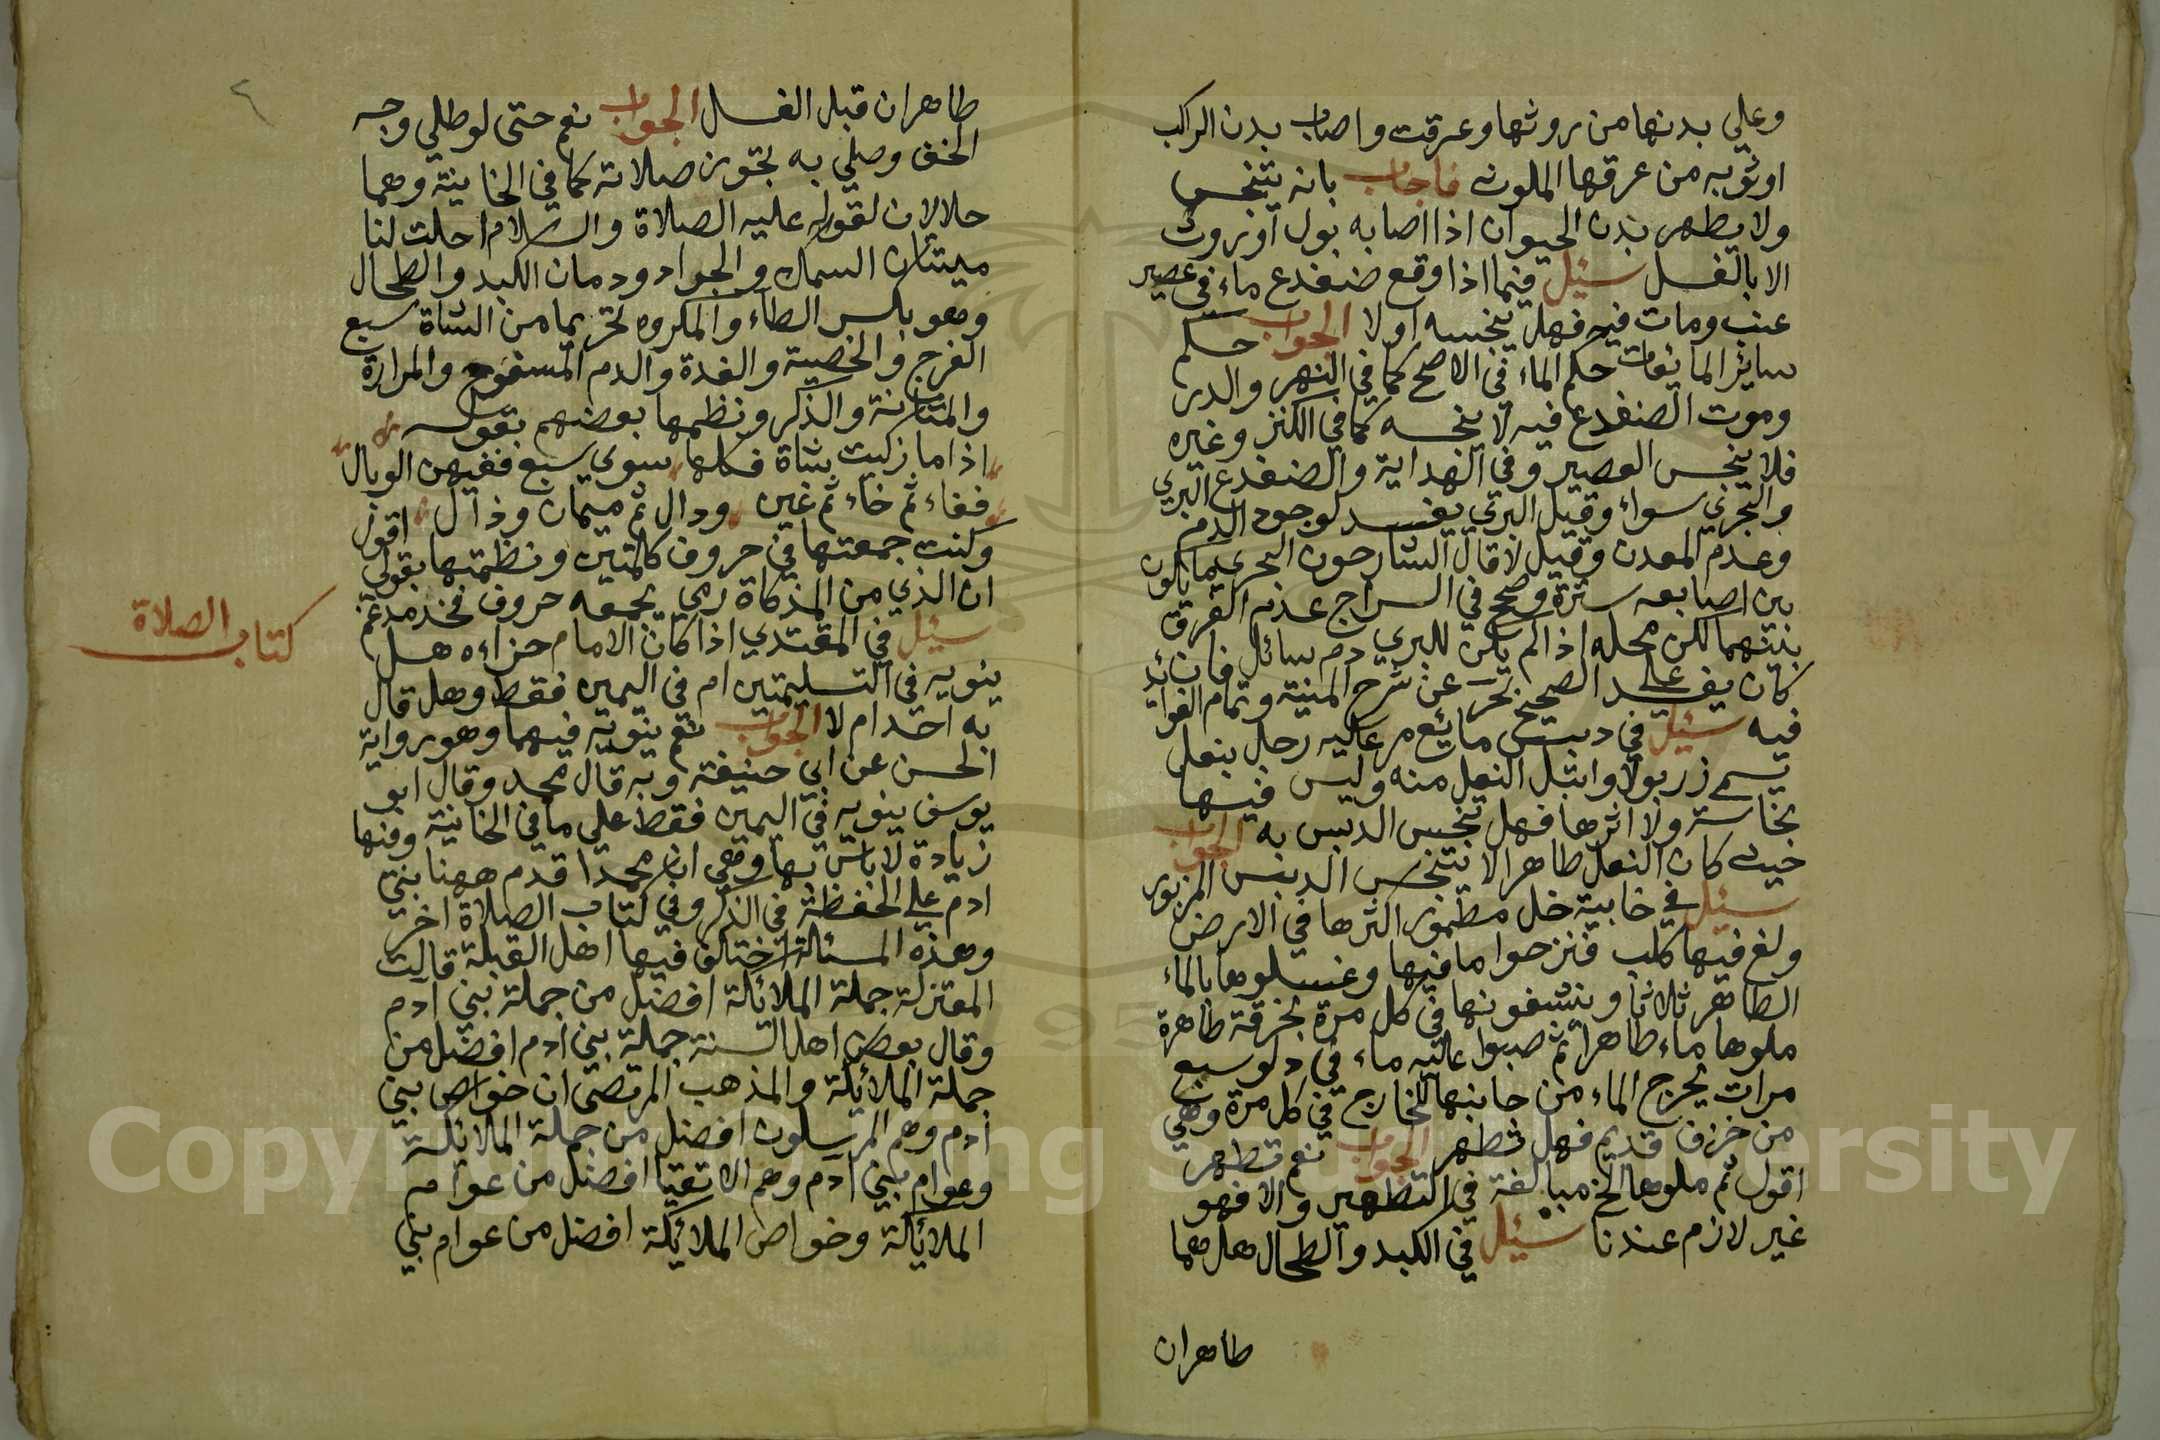 وعلي بدنها من روثها وعرقت واصاب بدن الراكب
او ثوبه من عرقها الملوث فاجاب بانه يتنجس
ولا يطهر بدن الحيوان اذا اصابه بول او روث
الا بالغسل سئيل فيما اذا وقع ضفدع ماء في عصير
عنب ومات فيه فهل ينجسه او لا الجواب حكم
سايئر المايعات حكم الماء في الاصح كما في النهر والدر
وموت الضفدع فيه لا ينجسه كما في الكنز وغيره
فلا ينجس العصير وفي الهداية والضفدع البري
والبحري سواء وقيل البري يفسد لوجود الدم
وعدم المعدن وقيل لا قال الشارحون البحري ما يكون
بين اصابعه سترة وصحح في السراج عدم الفرق
بينهما لكن محله اذا لم يكن للبري دم سائل فان
كان يفسد على الصحيح بحر عن شرح المنية وتمام الفوائد
فيه سئيل في دبس مائع مر عليه رجل بنعل
يسمى زربولا وابتل النعل منه وليس فيها
نجاسة ولا اثرها فهل تنجس الدبس به الجواب
حيث كان النعل طاهرا لا يتنجس الدبس المزبور
سئيل في خابية خل مطمور اكثرها في الارض
ولغ فيها كلب فنزحوا ما فيها وغسلوها بالماء
الطاهر ثلاثا وينشفونها في كل مرة بخرقة طاهرة
ملوها ماء طاهرا ثم صبوا عليه ماء في دلو سبع
مرات يخرج الماء من جانبها للخارج في كل مرة وهي
من خزف قديم فهل تطهر الجواب نعم تطهر
اقول ثم ملوها الخ مبالغة في التطهير والا فهو
غير لازم عندنا سئيل في الكبد والطحال هل هما
طاهران
طاهران قبل الغسل الجواب نعم حتى لو طلي وجه
الخف وصلي به تجوز صلاته كما في الخانية وهما
حلالان لقوله عليه الصلاة والسلام احلت لنا
ميتتان السمك والجراد ودمان الكبد والطحال
وهو بكسر الطاء والمكروه تحريما من الشاة سبع
الفرج والخصية والغدة والدم المسفوح والمرارة
والمثانة والذكر ونظمها بعضهم بقوله
اذا ما زكيت شاة فكلها سوي سبع ففيهن الوبال
ففاء ثم خاء ثم غين ودال ثم ميمان وذال اقول
وكنت جمعتها في حروف كلمتين ونظمتها بقولي
ان الذي من المذكاة رمي يجمعه حروف فخذ مدغم
كتاب الصلاة
سئيل في المقتدي اذا كان الامام حزاءه هل
ينويه في التسليمتين ام في اليمين فقط وهل قال
به احد ام لا الجواب نعم ينويه فيهما وهو رواية
الحسن عن ابي حنيفة وبه قال محمد وقال ابو
يوسف ينويه في اليمين فقط علي ما في الخانية وفيها
زيادة لا باس بها وهي ان محمدا قدم ههنا بني
ادم علي الحفظة في الذكر وفي كتاب الصلاة اخر
وهذه المسئالة اختلف فيها اهل القبلة قالت
المعتزلة جملة الملائكة افضل من جملة بني ادم
وقال بعض اهل السنة جملة بني ادم افضل من
جملة الملائكة والمذهب المرتضى ان خواص بني
ادم وهم المرسلون افضل من جملة الملائكة
وعوام بني ادم وهم الاتقيا افضل من عوام
الملائكة وخواص الملائكة افضل من عوام بني